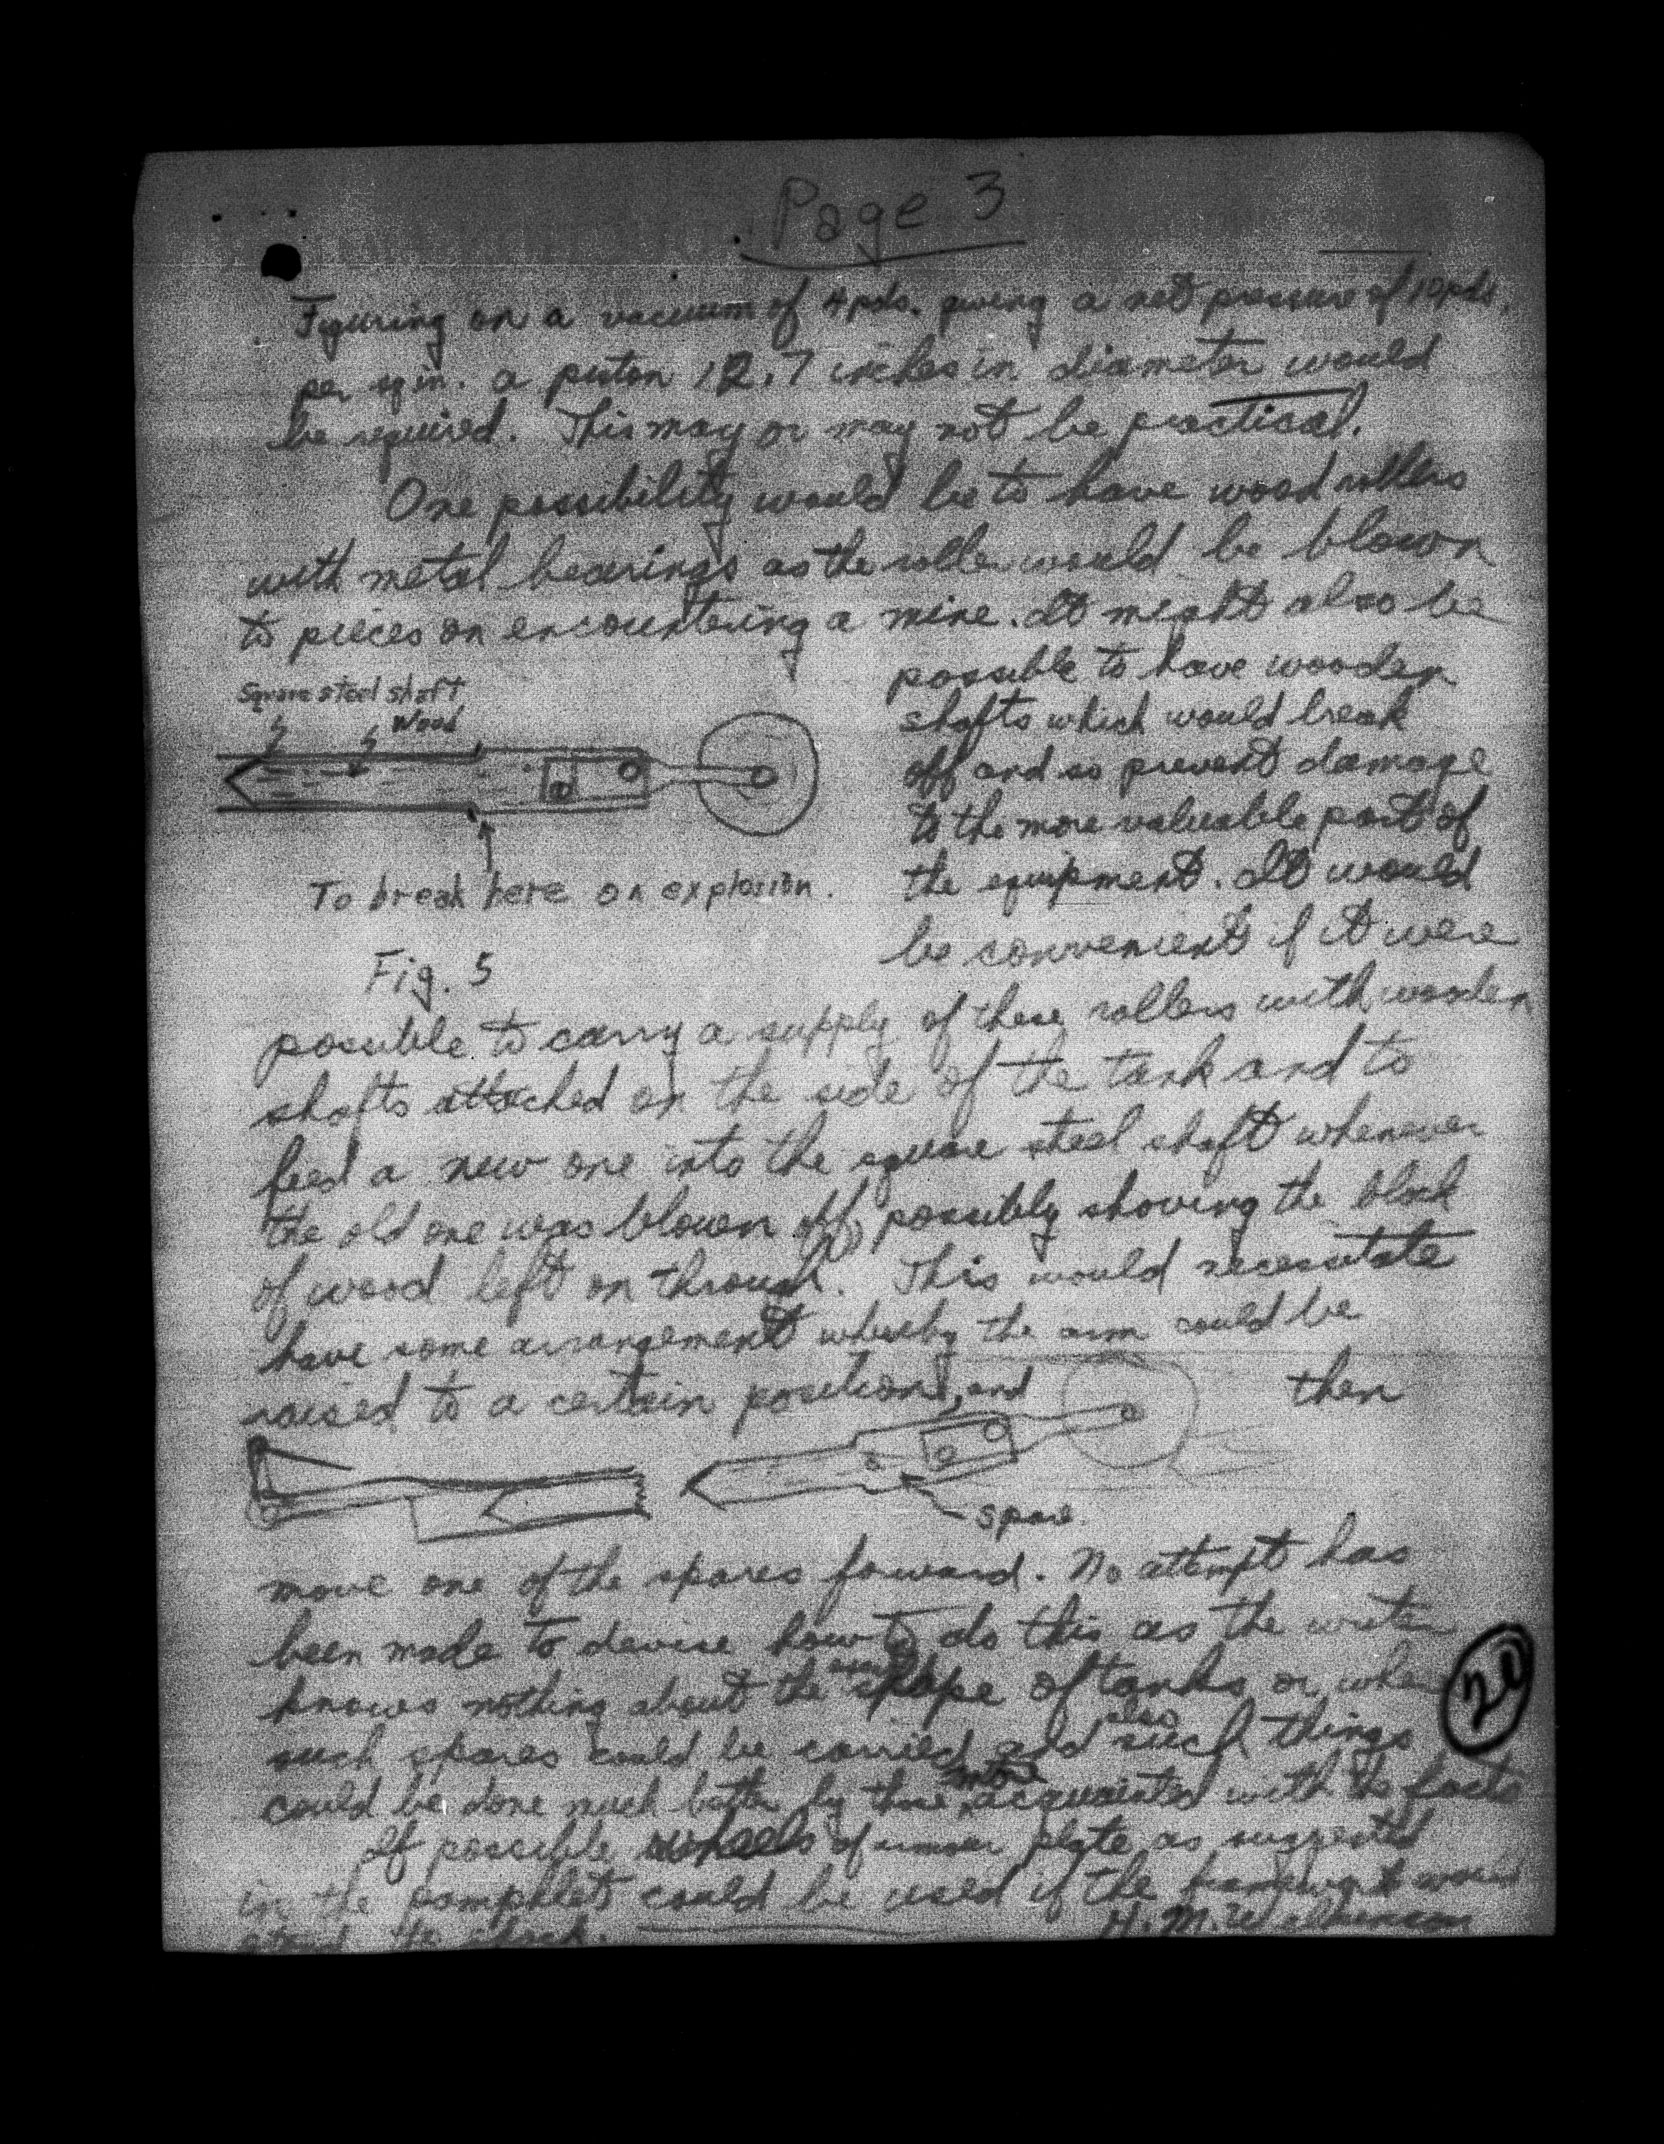 Page 3
Figuring on a vacuum of 4 pds. giving a net pressure of 10 pds.
per sq in. a piston 12.7 inches in diameter would
be required. This may or may not be practical.
One possibility would be to have wood rollers
with metal bearings as the roller would be blown
to pieces on encountering a mine. It might also be
possible to have wooden
shafts which would break
off and so prevent damage
to the more valuable part of
the equipment. It would
be convenient if it were
Square steel shaft
Wood
To break here on explosion.
Fig. 5
possible to carry a supply of these rollers with wooden
shafts attached on the side of the tank and to
feed a new one into the square steel shaft whenever
the old one was blown off, possibly shoving the block
of wood left on through. This would necessitate
have some arrangement whereby the arm could be
raised to a certain position, and then
spare
move one of the spares forward. No attempt has
been made to devise how to do this as the writer
knows nothing about the shape of tanks, or where
such spares could be carried and also such things
could be done much better by those more acquainted with the facts
If possible wheels of armour plate as suggested
in the pamphlet could be used if the framework would
stand the shock.
H. M. Wilkinson
20